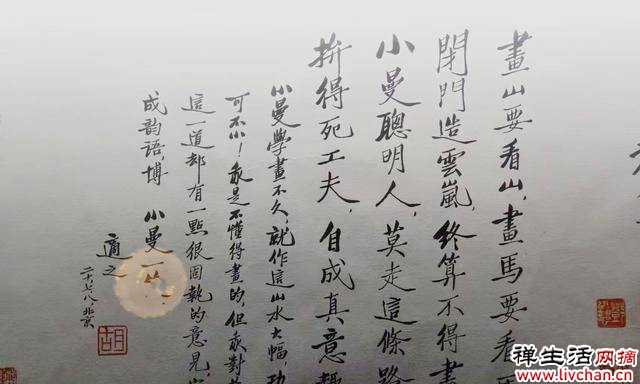 畫山要看山,畫馬要看
閉門造雲嵐,終算不得畫
小曼聰明人,莫走這條路
拚得死工夫,自成真意趣
小曼學畫不久,就作這山水大幅,功
可不小!我是不懂得畫的,但我對
這一道却有一點很固執的意見,
成韵語,博 小曼一笑
適之
二十,七,八,北京
胡
禅生活网摘
www.livchan.com